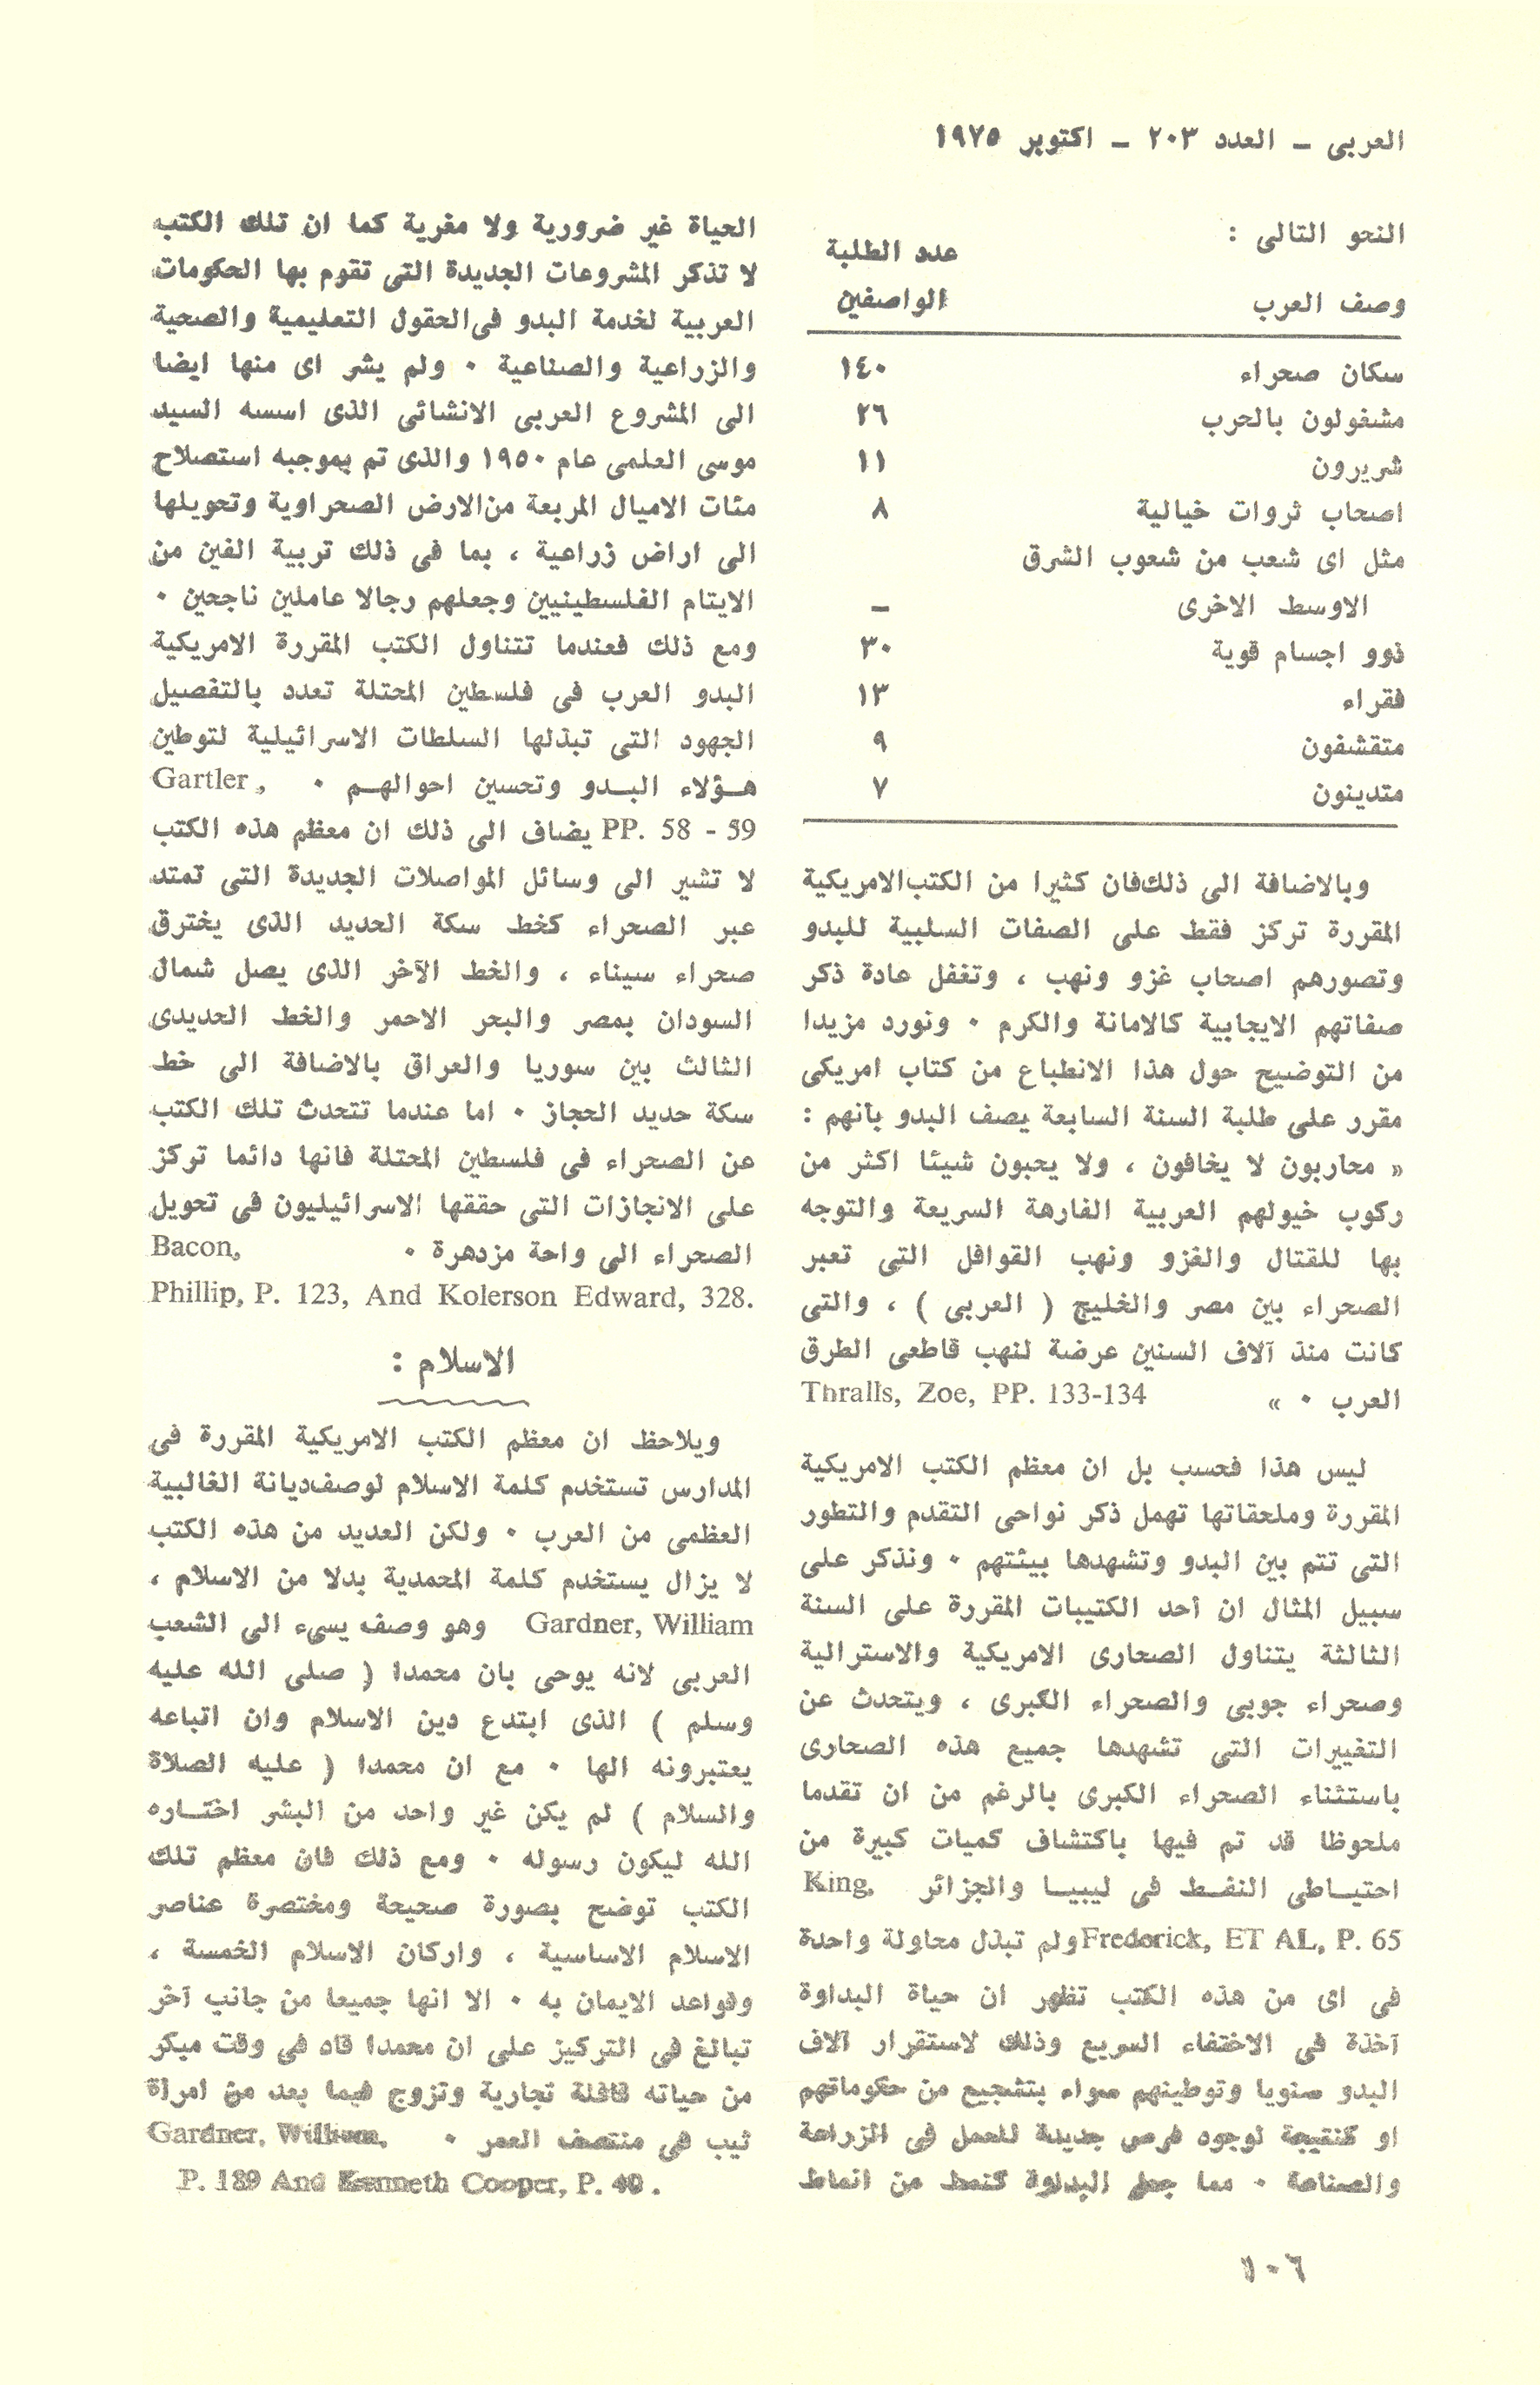 العربى – العدد ٢٠٣ – اكتوبر ١٩٧٥
النحو التالى :
وصف العرب عدد الطلبة الواصفين
سكان صحراء ١٤٠
مشغولون بالحرب ٢٦
شريرون ١١
اصحاب ثروات خيالية ٨
مثل اى شعب من شعوب الشرق
الاوسط الاخرى –
ذوو اجسام قوية ٣٠
فقراء ١٣
متقشفون ٩
متدينون ٧
وبالاضافة الى ذلك فان كثيرا من الكتب الامريكية
المقررة تركز فقط على الصفات السلبية للبدو
وتصورهم اصحاب غزو ونهب ، وتغفل عادة ذكر
صفاتهم الايجابية كالامانة والكرم ٠ ونورد مزيدا
من التوضيح حول هذا الانطباع من كتاب امريكى
مقرر على طلبة السنة السابعة يصف البدو بأنهم :
« محاربون لا يخافون ، ولا يحبون شيئا اكثر من
ركوب خيولهم العربية الفارهة السريعة والتوجه
بها للقتال والغزو ونهب القوافل التى تعبر
الصحراء بين مصر والخليج ( العربى ) ، والتى
كانت منذ آلاف السنين عرضة لنهب قاطعى الطرق
العرب ٠ » Thralls, Zoe, PP. 133-134
ليس هذا فحسب بل ان معظم الكتب الامريكية
المقررة وملحقاتها تهمل ذكر نواحى التقدم والتطور
التى تتم بين البدو وتشهدها بيئتهم ٠ ونذكر على
سبيل المثال ان أحد الكتيبات المقررة على السنة
الثالثة يتناول الصحارى الامريكية والاسترالية
وصحراء جوبى والصحراء الكبرى ، ويتحدث عن
التغييرات التى تشهدها جميع هذه الصحارى
باستثناء الصحراء الكبرى بالرغم من ان تقدما
ملحوظا قد تم فيها باكتشاف كميات كبيرة من
احتيـاطى النفـط فى ليبيـا والجزائر King,
Frederick, ET AL, P. 65 ولم تبذل محاولة واحدة
فى اى من هذه الكتب تظهر ان حياة البداوة
آخذة فى الاختفاء السريع وذلك لاستقرار آلاف
البدو سنويا وتوطينهم سواء بتشجيع من حكوماتهم
او كنتيجة لوجود فرص جديدة للعمل فى الزراعة
والصناعة ٠ مما جعل البداوة كنمط من انماط
الحياة غير ضرورية ولا مغرية كما ان تلك الكتب
لا تذكر المشروعات الجديدة التى تقوم بها الحكومات
العربية لخدمة البدو فى الحقول التعليمية والصحية
والزراعية والصناعية ٠ ولم يشر اى منها ايضا
الى المشروع العربى الانشائى الذى اسسه السيد
موسى العلمى عام ١٩٥٠ والذى تم بموجبه استصلاح
مئات الاميال المربعة من الارض الصحراوية وتحويلها
الى اراض زراعية ، بما فى ذلك تربية الفين من
الايتام الفلسطينيين وجعلهم رجالا عاملين ناجحين ٠
ومع ذلك فعندما تتناول الكتب المقررة الامريكية
البدو العرب فى فلسطين المحتلة تعدد بالتفصيل
الجهود التى تبذلها السلطات الاسرائيلية لتوطين
هـؤلاء البـدو وتحسين احوالهـم ٠ Gartler,
PP. 58 - 59 يضاف الى ذلك ان معظم هذه الكتب
لا تشير الى وسائل المواصلات الجديدة التى تمتد
عبر الصحراء كخط سكة الحديد الذى يخترق
صحراء سيناء ، والخط الآخر الذى يصل شمال
السودان بمصر والبحر الاحمر والخط الحديدى
الثالث بين سوريا والعراق بالاضافة الى خط
سكة حديد الحجاز ٠ اما عندما تتحدث تلك الكتب
عن الصحراء فى فلسطين المحتلة فانها دائما تركز
على الانجازات التى حققها الاسرائيليون فى تحويل
الصحراء الى واحة مزدهرة ٠ Bacon,
Phillip, P. 123, And Kolerson Edward, 328.
الاسلام :
ويلاحظ ان معظم الكتب الامريكية المقررة فى
المدارس تستخدم كلمة الاسلام لوصف ديانة الغالبية
العظمى من العرب ٠ ولكن العديد من هذه الكتب
لا يزال يستخدم كلمة المحمدية بدلا من الاسلام ،
Gardner, William وهو وصف يسىء الى الشعب
العربى لانه يوحى بان محمدا ( صلى الله عليه
وسلم ) الذى ابتدع دين الاسلام وان اتباعه
يعتبرونه الها ٠ مع ان محمدا ( عليه الصلاة
والسلام ) لم يكن غير واحد من البشر اختـاره
الله ليكون رسوله ٠ ومع ذلك فان معظم تلك
الكتب توضح بصورة صحيحة ومختصرة عناصر
الاسلام الاساسية ، واركان الاسلام الخمسة ،
وقواعد الايمان به ٠ الا انها جميعا من جانب آخر
تبالغ فى التركيز على ان محمدا قاد فى وقت مبكر
من حياته قافلة تجارية وتزوج فيما بعد من امرأة
ثيب فى منتصف العمر ٠ Gardner, William,
P. 189 And Kenneth Cooper, P. 40 .
١٠٦